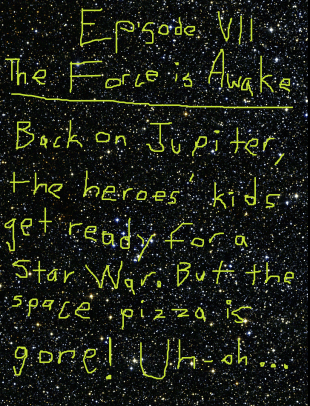 Episode VII
The Force is Awake
Back on Jupiter,
the heroes' kids
get ready for a
Star War. But the
space pizza is
gone! Uh-oh...